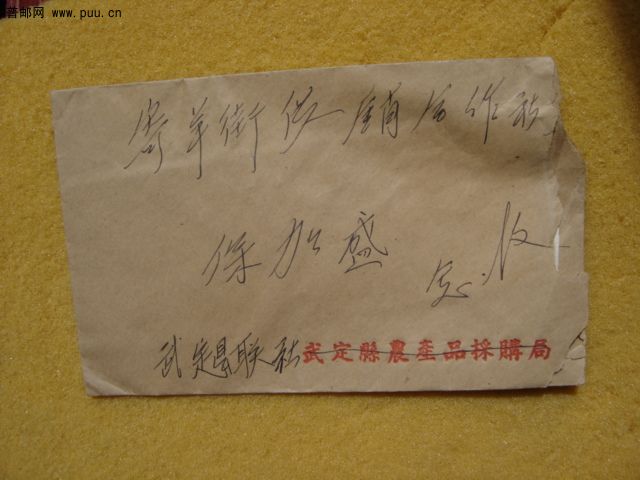 普邮网 www.puu.cn
寄羊街供销合作社
保加盛 收
武定县联社武定縣農產品採購局